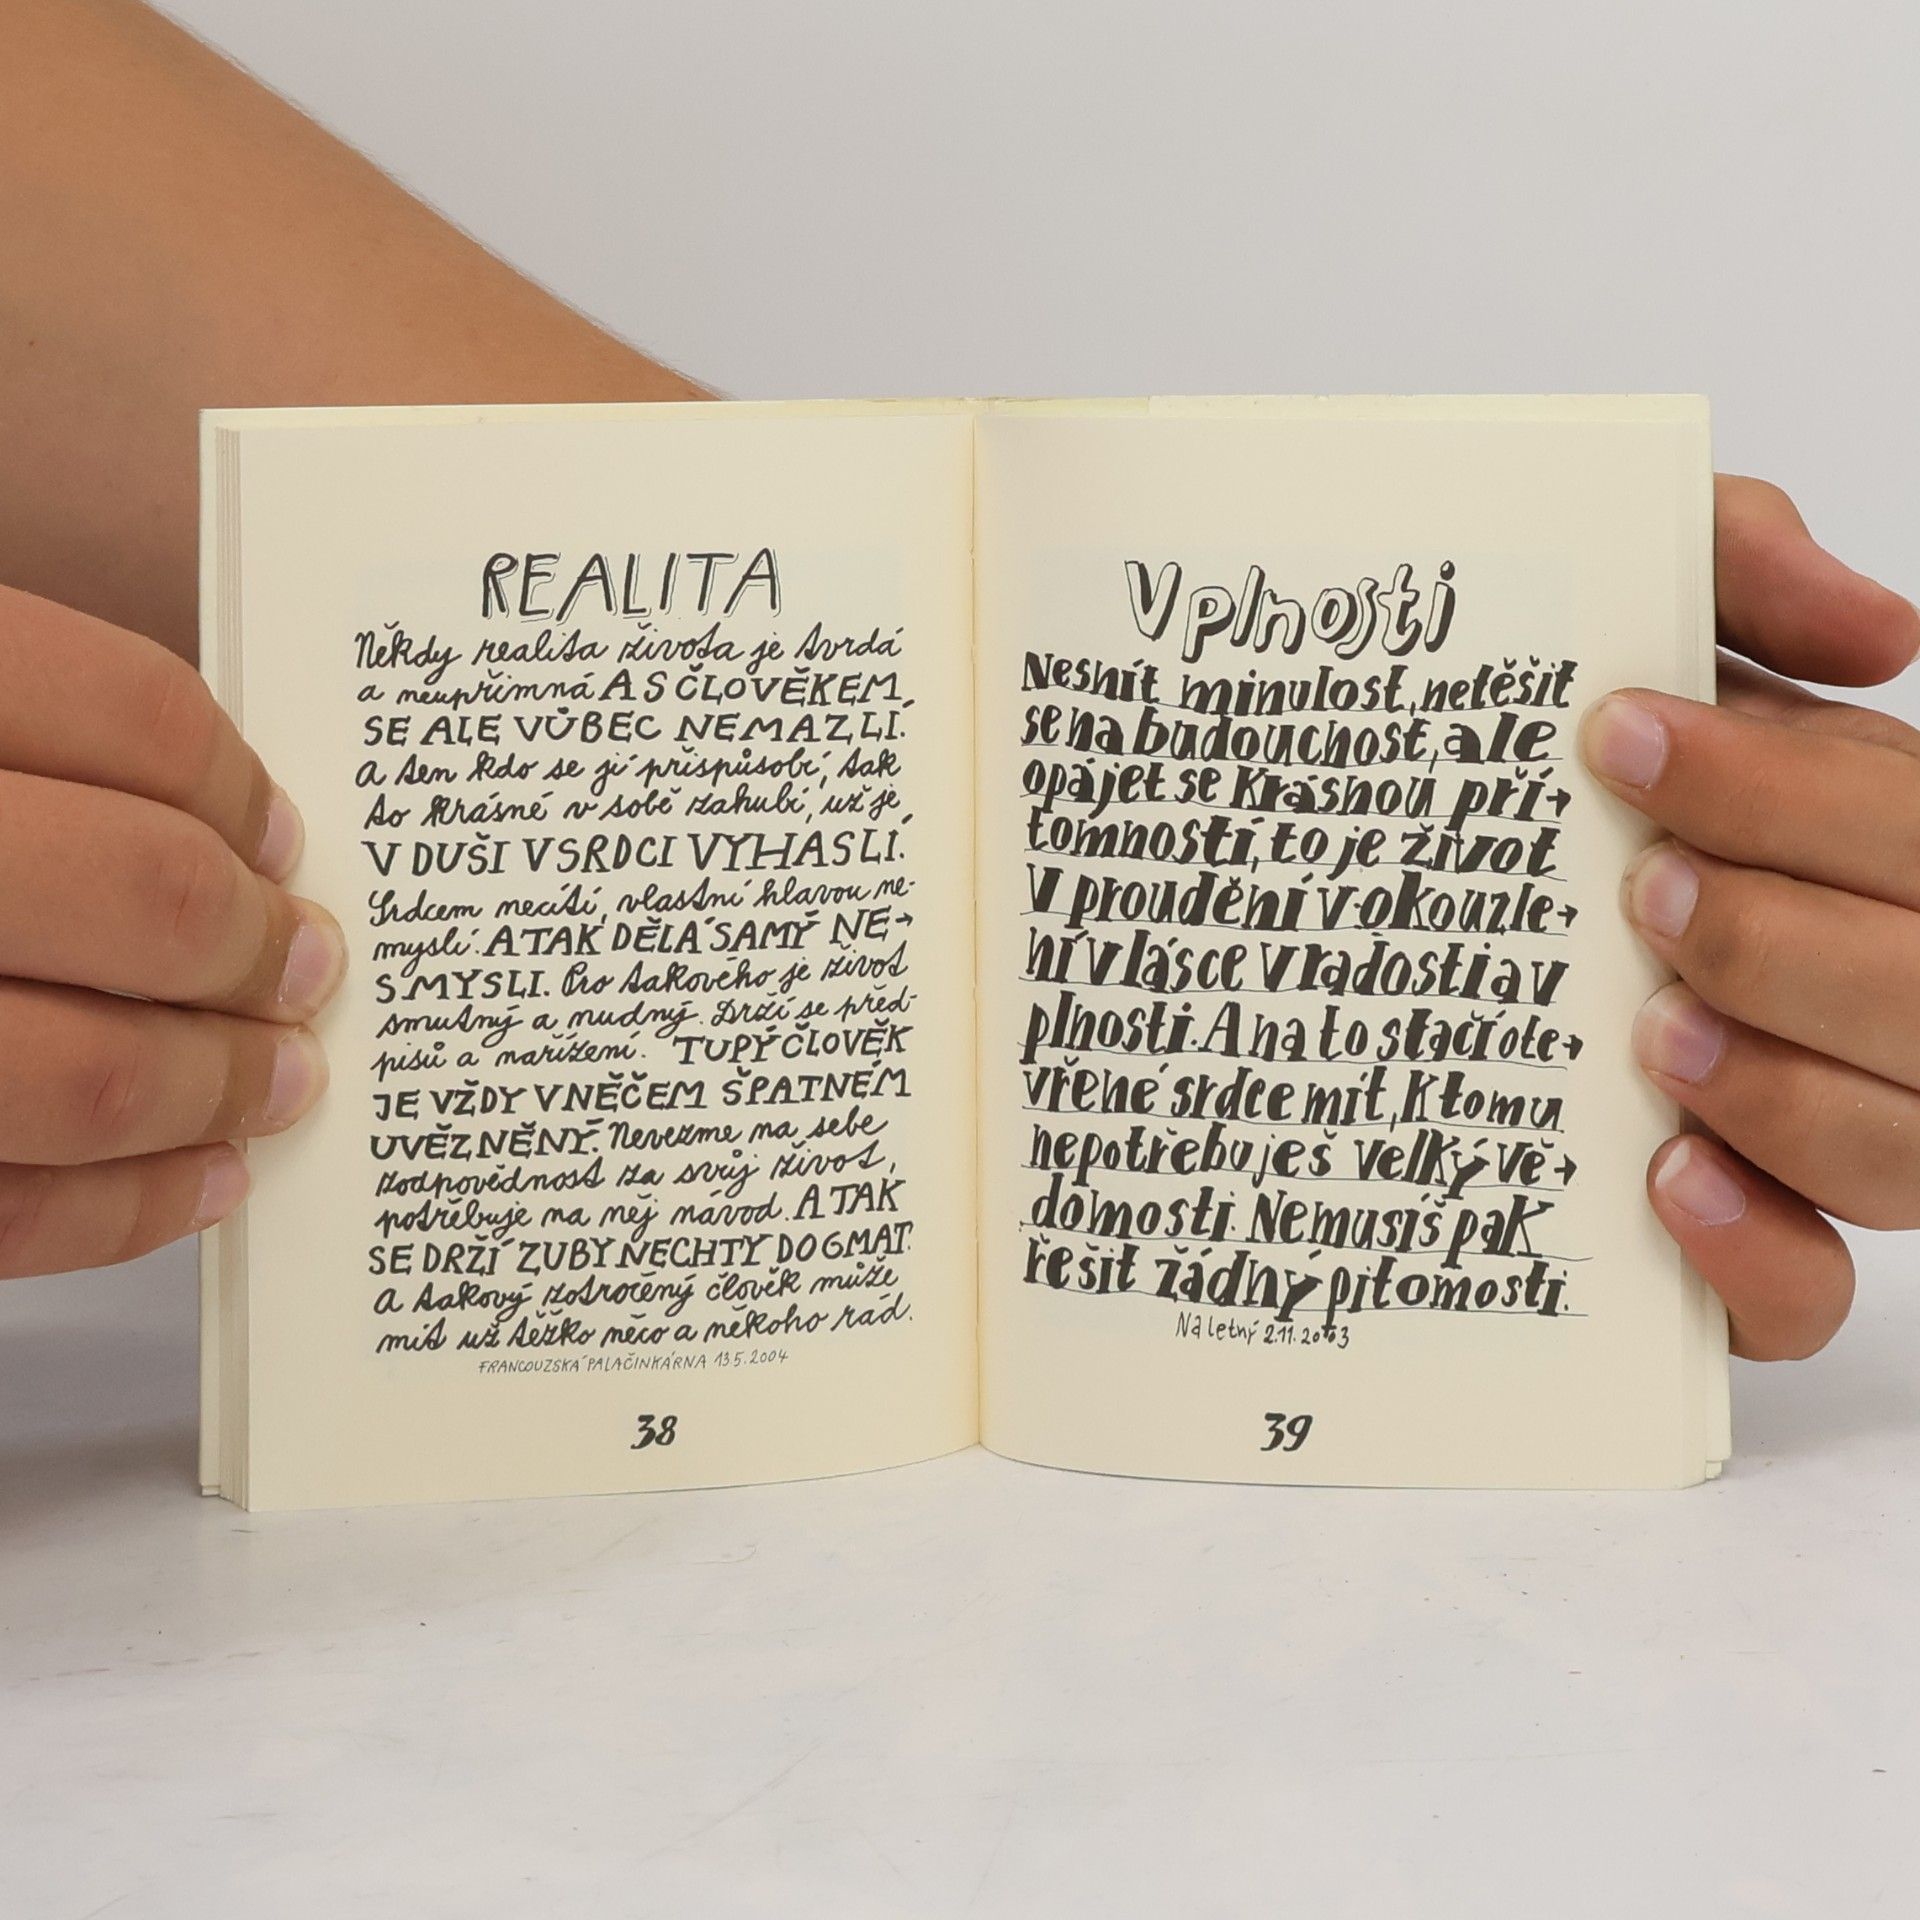 REALITA
Někdy realita života je tvrdá
a neupřímná A S ČLOVĚKEM
SE ALE VŮBEC NEMAZLÍ.
A ten kdo se jí přispůsobí, tak
to krásné v sobě zahubí, už je
V DUŠI V SRDCI VYHASLÍ.
Srdcem necítí, vlastní hlavou ne-
myslí. A TAK DĚLÁ SAMÝ NE→
SMYSLI. Pro takového je život
smutný a nudný. Drží se před-
pisů a nařízení. TUPÝ ČLOVĚK
JE VŽDY V NĚČEM ŠPATNÉM
UVĚZNĚNÝ. Nevezme na sebe
zodpovědnost za svůj život,
potřebuje na něj návod. A TAK
SE DRŽÍ ZUBY NECHTY DOGMAT.
A takový zotročený člověk může
mít už těžko něco a někoho rád.
FRANCOUZSKÁ PALAČINKÁRNA 13.5.2004
38
V plnosti
Nesnít minulost, netěšit
se na budoucnost, ale
opájet se krásnou pří→
tomností, to je život
v proudění v okouzle→
ní v lásce v radosti a v
plnosti. A na to stačí ote→
vřené srdce mít, k tomu
nepotřebuješ velký vě→
domosti. Nemusíš pak
řešit žádný pitomosti.
Na letný 2.11.2003
39